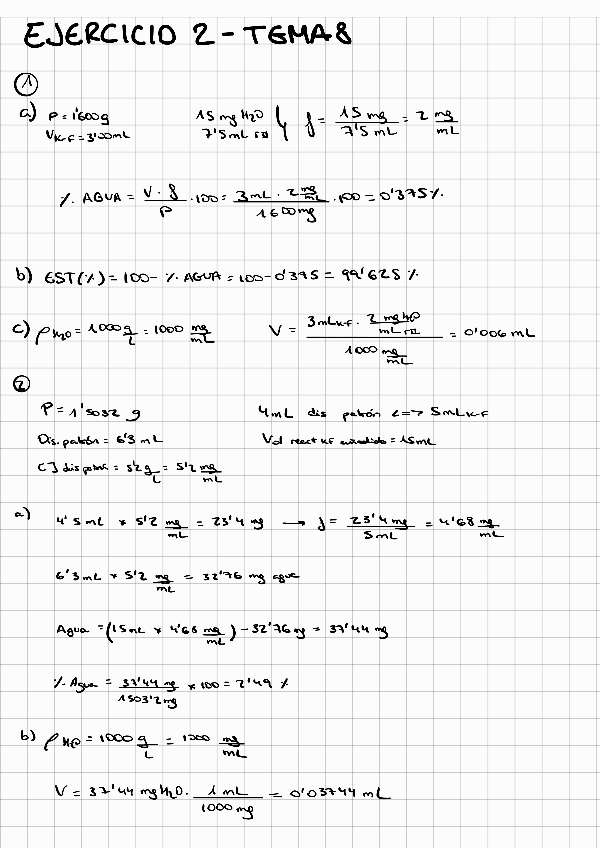 EJERCICIO 2 - TEMA 8
①
a) P = 1'600 g
V K-F = 3'00 mL
15 mg H2O
7'5 mL
f = 15 mg / 7'5 mL = 2 mg/mL
% AGUA = V · f / P · 100 = 3 mL · 2 mg/mL / 1600 mg · 100 = 0'375 %
b) EST (%) = 100 - % AGUA = 100 - 0'375 = 99'625 %
c) ρ H2O = 1000 g/L = 1000 mg/mL
V = 3 mL K-F · 2 mg H2O/mL / 1000 mg/mL = 0'006 mL
②
P = 1'5032 g
4 mL dis patrón <=> 5 mL K-F
Dis. patrón = 6'3 mL
Vol react KF añadido = 15 mL
[] dis patrón = 5'2 g/L = 5'2 mg/mL
a) 4'5 mL * 5'2 mg/mL = 23'4 mg → f = 23'4 mg / 5 mL = 4'68 mg/mL
6'3 mL * 5'2 mg/mL = 32'76 mg agua
Agua = (15 mL * 4'68 mg/mL) - 32'76 mg = 37'44 mg
% Agua = 37'44 mg / 1503'2 mg * 100 = 2'49 %
b) ρ H2O = 1000 g/L = 1000 mg/mL
V = 37'44 mg H2O · 1 mL / 1000 mg = 0'03744 mL